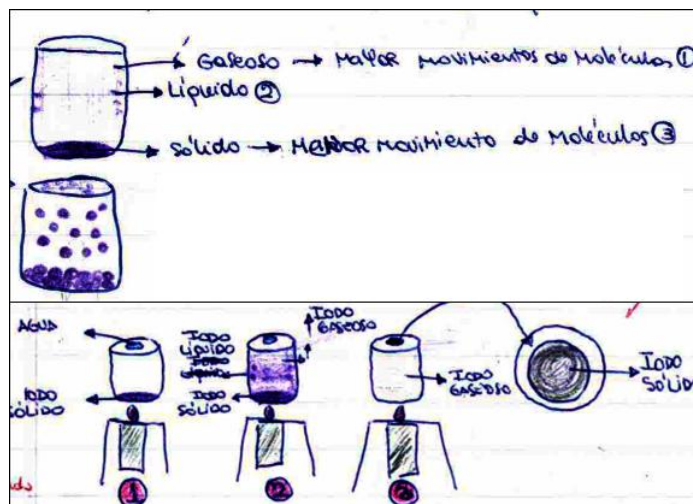 Gaseoso → Mayor movimientos de moléculas ①
Líquido ②
Sólido → Menor movimiento de moléculas ③
AGUA
IODO SÓLIDO
①
IODO LÍQUIDO
IODO
IODO SÓLIDO
IODO GASEOSO
②
IODO GASEOSO
③
IODO SÓLIDO